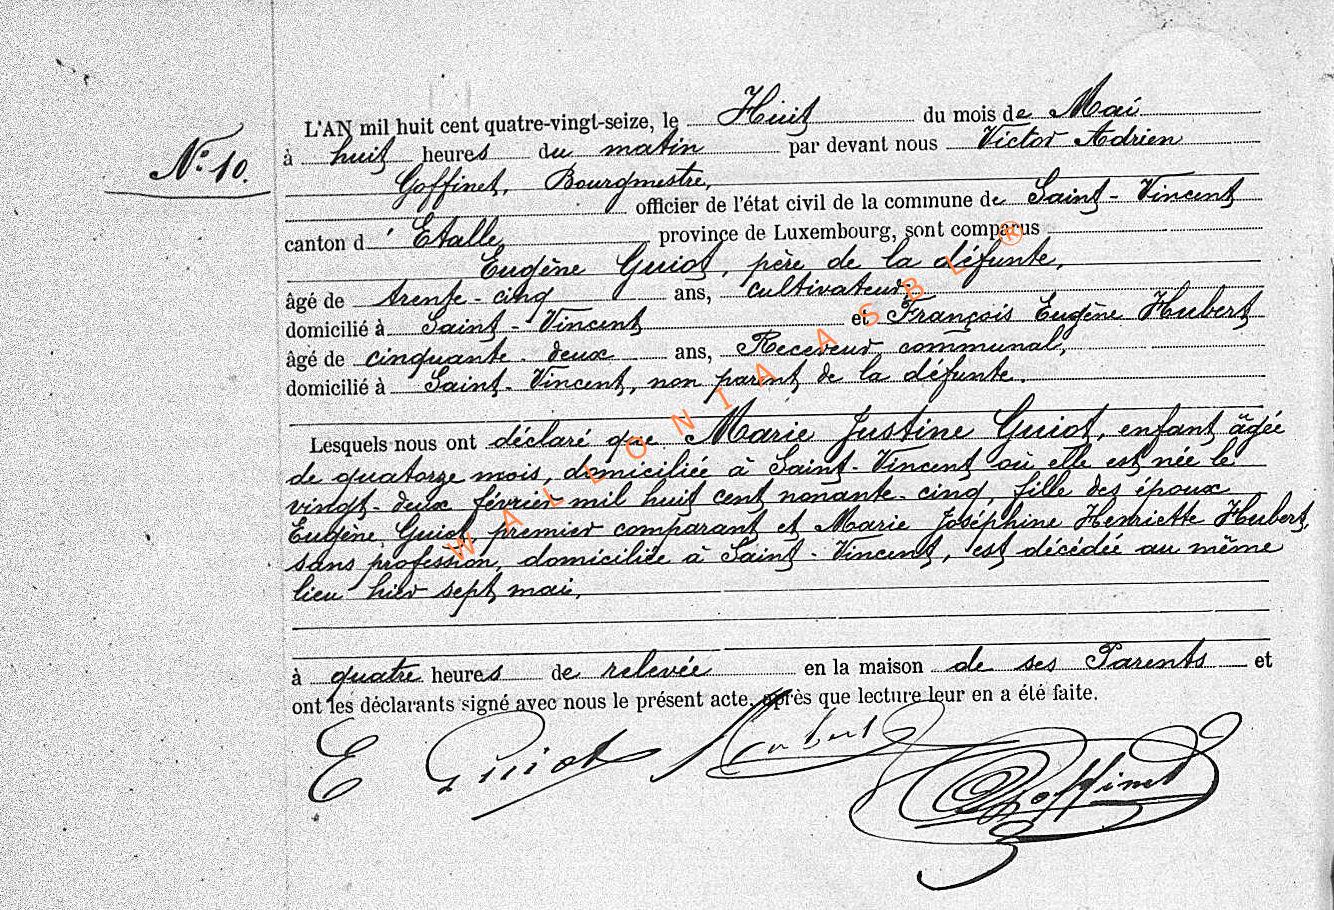 L'AN mil huit cent quatre-vingt-seize, le Huit du mois de Mai
N° 10.
à huit heures du matin par devant nous Victor Adrien
Goffinet, Bourgmestre,
officier de l'état civil de la commune de Saint-Vincent
canton d'Etalle, province de Luxembourg, sont comparus
Eugène Guiot, père de la défunte,
âgé de trente-cinq ans, cultivateur,
domicilié à Saint-Vincent et François Eugène Hubert
âgé de cinquante-deux ans, Receveur communal,
domicilié à Saint-Vincent, non parent de la défunte.
Lesquels nous ont déclaré que Marie Justine Guiot, enfant âgée
de quatorze mois, domiciliée à Saint-Vincent où elle est née le
vingt-deux février mil huit cent nonante-cinq, fille des époux
Eugène Guiot, premier comparant et Marie Joséphine Henriette Hubert,
sans profession, domiciliée à Saint-Vincent, est décédée au même
lieu hier sept mai,
à quatre heures de relevée en la maison de ses Parents et
ont les déclarants signé avec nous le présent acte, après que lecture leur en a été faite.
E Guiot Hubert Goffinet
WALLONIA ASBL ®